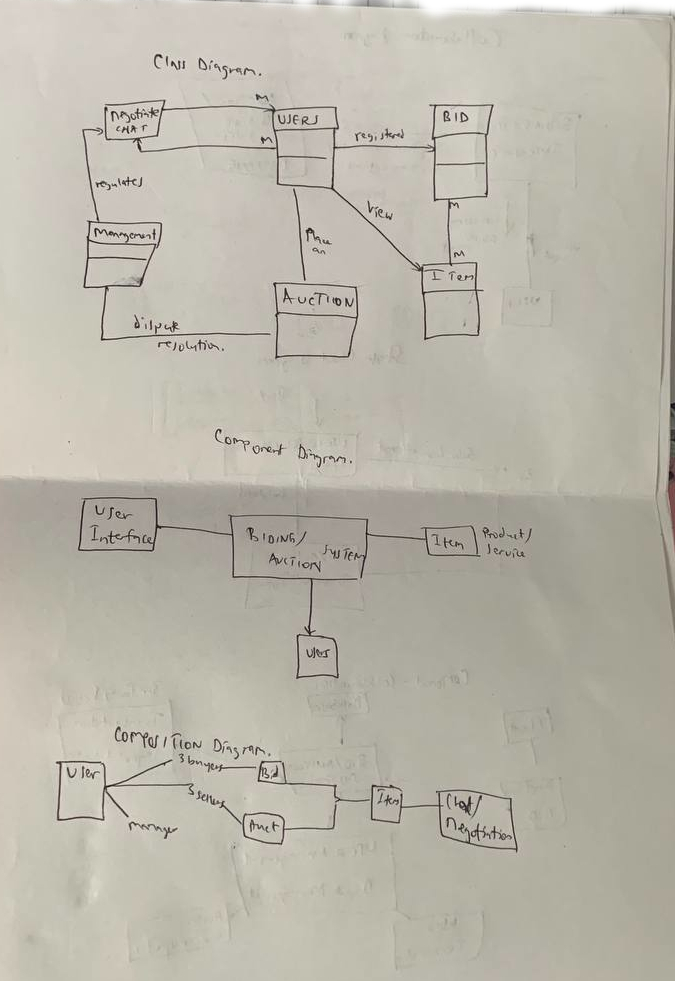 Class Diagram.
Negotiate
CHAT
M
M
USERS
registered
BID
regulates
View
M
M
Management
Place
an
ITem
AUCTION
dispute
resolution.
Component Diagram.
User
Interface
BIDING/
AUCTION SYSTEM
Item
Product/
Service
COMPOSITION Diagram.
User
3 buyers
Bid
3 sellers
manager
Auct
Item
Chat/
Negotiation